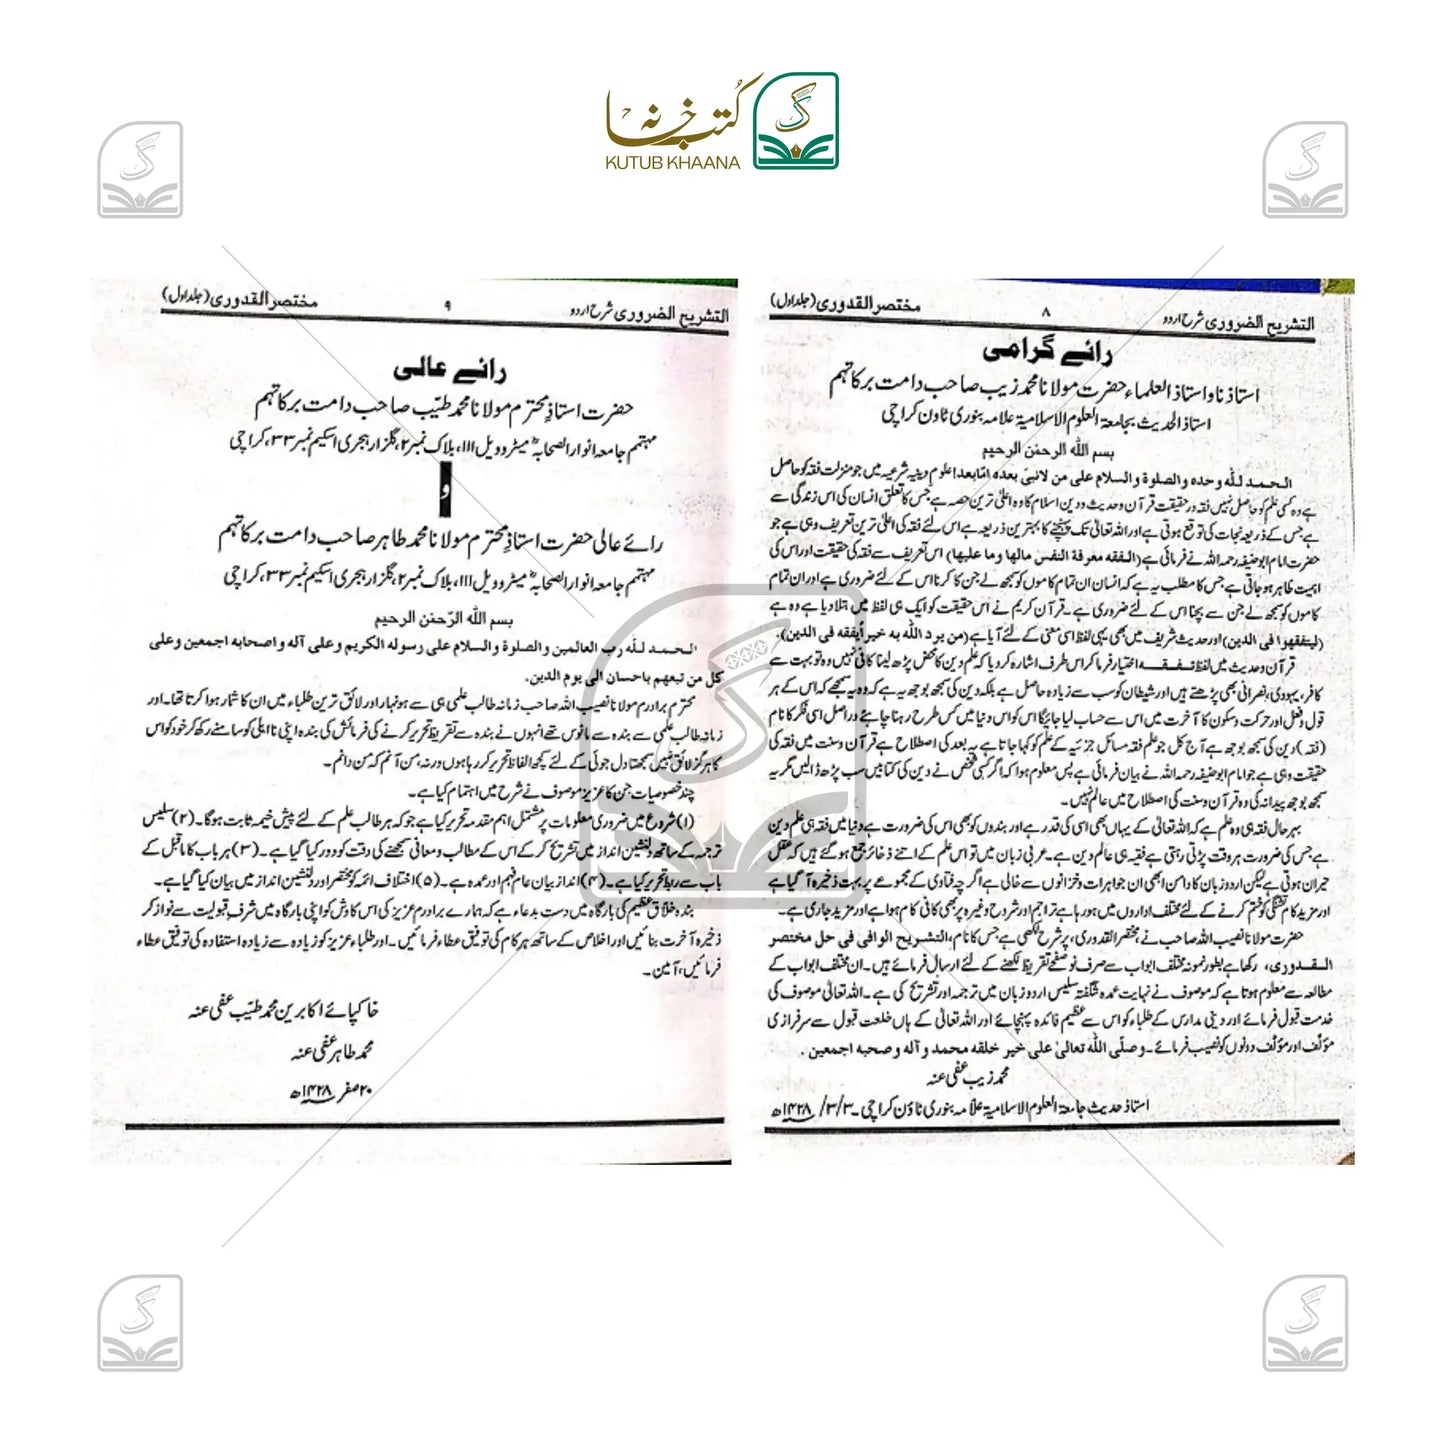 کُتب خانہ
KUTUB KHAANA
التشریح الضروری شرح اردو ۸ مختصر القدوری (جلد اول)
رائے گرامی
استاذنا و استاذ العلماء حضرت مولانا محمد زیب صاحب دامت برکاتہم
استاذ الحدیث بجامعۃ العلوم الاسلامیۃ علامہ بنوری ٹاون کراچی
بسم اللہ الرحمٰن الرحیم
الحمد للہ وحدہ والصلوۃ والسلام علی من لانبیّ بعدہ امّابعد! علوم دینیہ شرعیہ میں جو منزلت فقہ کو حاصل
ہے وہ کسی علم کو حاصل نہیں فقہ درحقیقت قرآن وحدیث و دین اسلام کا وہ اعلیٰ ترین حصہ ہے جس کا تعلق انسان کی اس زندگی سے
ہے جس کے ذریعہ نجات کی توقع ہوتی ہے اور اللہ تعالیٰ تک پہنچنے کا بہترین ذریعہ ہے اس لئے فقہ کی اعلیٰ ترین تعریف وہی ہے جو
حضرت امام ابوحنیفہ رحمہ اللہ نے فرمائی ہے (الفقه معرفة النفس مالها وما عليها) اس تعریف سے فقہ کی حقیقت اور اس کی
اہمیت ظاہر ہو جاتی ہے جس کا مطلب یہ ہے کہ انسان ان تمام کاموں کو سمجھ لے جن کا کرنا اس کے لئے ضروری ہے اور ان تمام
کاموں کو سمجھ لے جن سے بچنا اس کے لئے ضروری ہے۔ قرآن کریم نے اس حقیقت کو ایک ہی لفظ میں بتلا دیا ہے وہ ہے
(ليتفقهوا فى الدين) اور حدیث شریف میں بھی یہی لفظ اسی معنی کے لئے آیا ہے (من يرد الله به خيرا يفقه فى الدين)۔
قرآن وحدیث میں لفظ تفقہ اختیار فرما کر اس طرف اشارہ کر دیا کہ علم دین کا محض پڑھ لینا کافی نہیں وہ تو بہت سے
کافر، یہودی، نصرانی بھی پڑھتے ہیں اور شیطان کو سب سے زیادہ حاصل ہے بلکہ دین کی سمجھ بوجھ یہ ہے کہ وہ یہ سمجھے کہ اس کے ہر
قول وفعل اور حرکت وسکون کا آخرت میں اس سے حساب لیا جائیگا اس کو اس دنیا میں کس طرح رہنا چاہئے دراصل اسی فکر کا نام
(فقہ) دین کی سمجھ بوجھ ہے آج کل جو علم فقہ مسائل جزئیہ کے علم کو کہا جاتا ہے یہ بعد کی اصطلاح ہے قرآن وسنت میں فقہ کی
حقیقت وہی ہے جو امام ابوحنیفہ رحمہ اللہ نے بیان فرمائی ہے پس معلوم ہوا کہ اگر کسی شخص نے دین کی کتابیں سب پڑھ ڈالیں مگر یہ
سمجھ بوجھ پیدا نہ کی وہ قرآن وسنت کی اصطلاح میں عالم نہیں۔
بہرحال فقہ ہی وہ علم ہے کہ اللہ تعالیٰ کے یہاں بھی اسی کی قدر ہے اور بندوں کو بھی اس کی ضرورت ہے دنیا میں فقہ ہی علم دین
ہے جس کی ضرورت ہر وقت پڑتی رہتی ہے فقیہ ہی عالم دین ہے۔ عربی زبان میں تو اس علم کے اتنے ذخائر جمع ہو گئے ہیں کہ عقل
حیران ہوتی ہے لیکن اردو زبان کا دامن ابھی ان جواہرات وخزانوں سے خالی ہے اگرچہ فتاوی کے مجموعے پر بہت ذخیرہ آ گیا ہے
اور مزید کام تشنگی کو ختم کرنے کے لئے مختلف اداروں میں ہو رہا ہے تراجم اور شروح وغیرہ پر بھی کافی کام ہوا ہے اور مزید جاری ہے۔
حضرت مولانا نصیب اللہ صاحب نے، مختصر القدوری، پر شرح لکھی ہے جس کا نام، التشريح الوافى فى حل مختصر
القدوری، رکھا ہے بطور نمونہ مختلف ابواب سے صرف نو صفحے تقریظ لکھنے کے لئے ارسال فرمائے ہیں۔ ان مختلف ابواب کے
مطالعہ سے معلوم ہوتا ہے کہ موصوف نے نہایت عمدہ شگفتہ سلیس اردو زبان میں ترجمہ اور تشریح کی ہے۔ اللہ تعالیٰ موصوف کی
خدمت قبول فرمائے اور دینی مدارس کے طلباء کو اس سے عظیم فائدہ پہنچائے اور اللہ تعالیٰ کے ہاں خلعت قبول سے سرفرازی
مؤلِّف اور مؤلَّف دونوں کو نصیب فرمائے۔ وصلّى الله تعالىٰ على خير خلقه محمد و آله وصحبه اجمعين .
محمد زیب عفی عنہ
استاذ حدیث جامعۃ العلوم الاسلامیۃ علّامہ بنوری ٹاؤن کراچی۔ ۳/۳/ ۱۴۲۸ھ
التشریح الضروری شرح اردو ۹ مختصر القدوری (جلد اول)
رائے عالی
حضرت استاذِ محترم مولانا محمد طیّب صاحب دامت برکاتہم
مہتمم جامعہ انوار الصحابہؓ میٹروویل III، بلاک نمبر ۲، گلزار ہجری اسکیم نمبر ۳۳، کراچی
و
رائے عالی حضرت استاذِ محترم مولانا محمد طاہر صاحب دامت برکاتہم
مہتمم جامعہ انوار الصحابہؓ میٹروویل III، بلاک نمبر ۲، گلزار ہجری اسکیم نمبر ۳۳، کراچی
بسم اللہ الرّحمٰن الرحیم
الحمد للہ رب العالمین والصلوۃ والسلام علی رسوله الکریم وعلی آله واصحابه اجمعین وعلی
کل من تبعهم باحسان الی یوم الدین.
محترم برادرم مولانا نصیب اللہ صاحب زمانہ طالب علمی ہی سے ہونہار اور لائق ترین طلباء میں ان کا شمار ہوا کرتا تھا۔ اور
زمانہ طالب علمی سے بندہ سے مانوس تھے انہوں نے بندہ سے تقریظ تحریر کرنے کی فرمائش کی بندہ اپنی نا اہلی کو سامنے رکھ کر خود کو اس
کا ہرگز لائق نہیں سمجھتا دل جوئی کے لئے کچھ الفاظ تحریر کر رہا ہوں ورنہ، من آنم کہ من دانم۔
چند خصوصیات جن کا عزیز موصوف نے شرح میں اہتمام کیا ہے۔
(۱) شروع میں ضروری معلومات پر مشتمل اہم مقدمہ تحریر کیا ہے جو کہ ہر طالب علم کے لئے پیش خیمہ ثابت ہوگا۔ (۲) سلیس
ترجمہ کے ساتھ دلنشین انداز میں تشریح کر کے اس کے مطالب ومعانی سمجھنے کی دقت کو دور کیا گیا ہے۔ (۳) ہر باب کا ماقبل کے
باب سے ربط تحریر کیا ہے۔ (۴) انداز بیان عام فہم اور عمدہ ہے۔ (۵) اختلاف ائمہ کو مختصر اور دلنشین انداز میں بیان کیا گیا ہے۔
بندہ خلاق عظیم کی بارگاہ میں دست بدعاء ہے کہ ہمارے برادرم عزیز کی اس کاوش کو اپنی بارگاہ میں شرف قبولیت سے نواز کر
ذخیرہ آخرت بنائیں اور اخلاص کے ساتھ ہر کام کی توفیق عطاء فرمائیں۔ اور طلباء عزیز کو زیادہ سے زیادہ استفادہ کی توفیق عطاء
فرمائیں، آمین۔
خاکپائے اکابرین محمد طیّب عفی عنہ
محمد طاہر عفی عنہ
۲۰ صفر ۱۴۲۸ھ